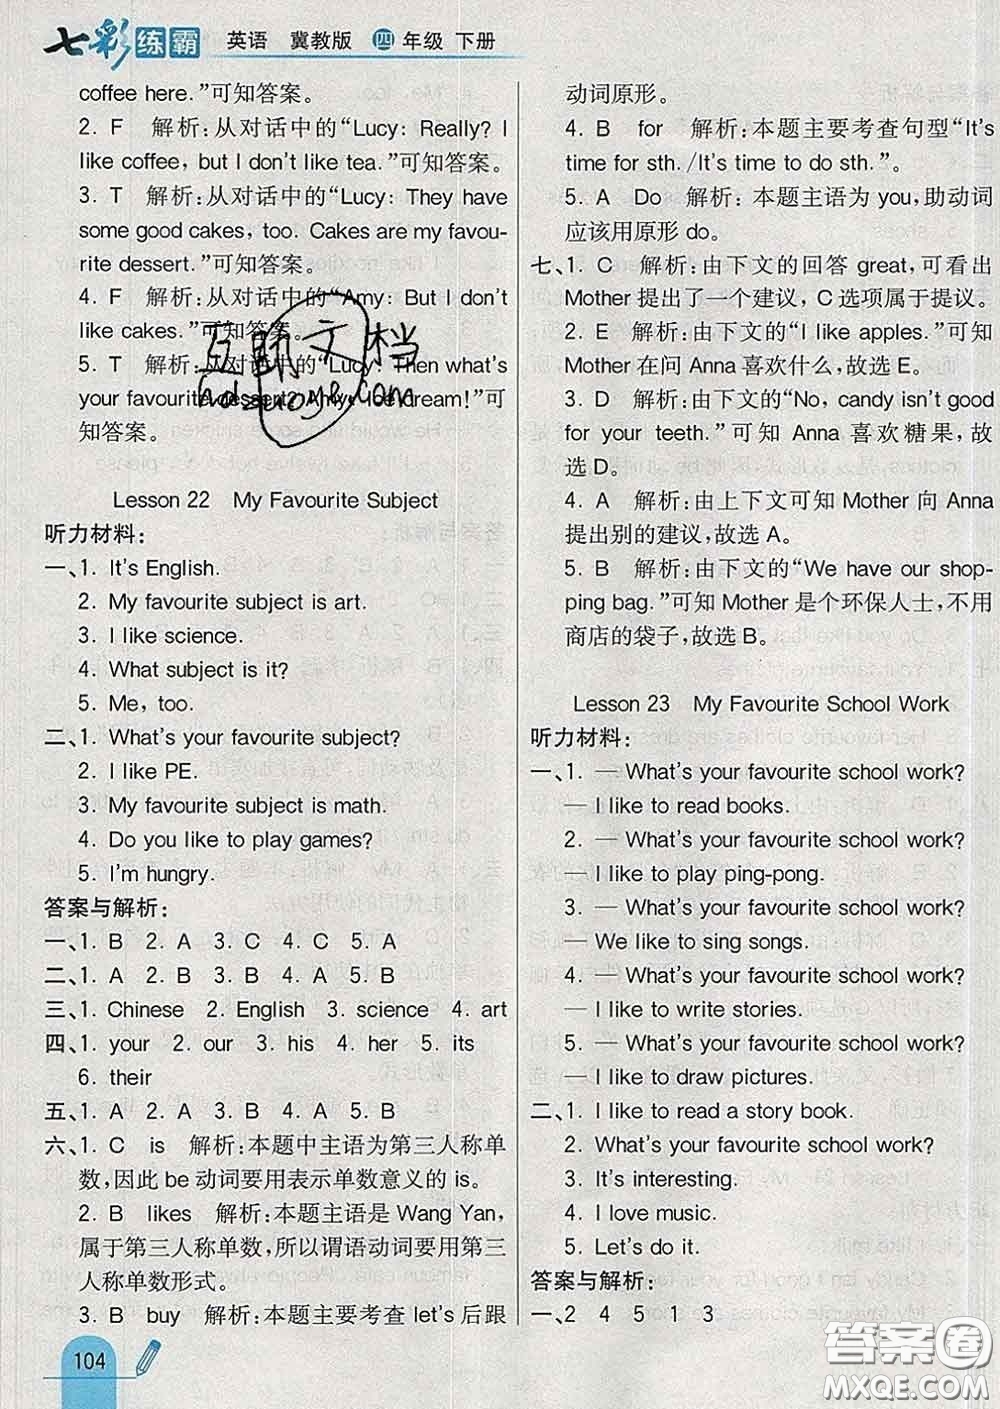 七彩练霸 英语 冀教版 四年级 下册
coffee here.”可知答案。
2. F 解析:从对话中的“Lucy: Really? I
like coffee, but I don't like tea.”可知答案。
3. T 解析:从对话中的“Lucy: They have
some good cakes, too. Cakes are my favou-
rite dessert.”可知答案。
4. F 解析:从对话中的“Amy: But I don't
like cakes.”可知答案。
5. T 解析:从对话中的“Lucy: Then what's
your favourite dessert? Amy: Ice cream!”可
知答案。
Lesson 22 My Favourite Subject
听力材料:
一、1. It's English.
2. My favourite subject is art.
3. I like science.
4. What subject is it?
5. Me, too.
二、1. What's your favourite subject?
2. I like PE.
3. My favourite subject is math.
4. Do you like to play games?
5. I'm hungry.
答案与解析:
一、1. B 2. A 3. C 4. C 5. A
二、1. A 2. B 3. B 4. A 5. B
三、1. Chinese 2. English 3. science 4. art
四、1. your 2. our 3. his 4. her 5. its
6. their
五、1. A 2. A 3. B 4. A 5. B
六、1. C is 解析:本题中主语为第三人称单
数,因此 be 动词要用表示单数意义的 is。
2. B likes 解析:本题主语是 Wang Yan,
属于第三人称单数,所以谓语动词要用第三
人称单数形式。
3. B buy 解析:本题主要考查 let's 后跟
104
动词原形。
4. B for 解析:本题主要考查句型“It's
time for sth./It's time to do sth.”。
5. A Do 解析:本题主语为 you,助动词
应该用原形 do。
七、1. C 解析:由下文的回答 great,可看出
Mother 提出了一个建议,C 选项属于提议。
2. E 解析:由下文的“I like apples.”可知
Mother 在问 Anna 喜欢什么,故选 E。
3. D 解析:由下文的“No, candy isn't good
for your teeth.”可知 Anna 喜欢糖果,故
选 D。
4. A 解析:由上下文可知 Mother 向 Anna
提出别的建议,故选 A。
5. B 解析:由下文的“We have our shop-
ping bag.”可知 Mother 是个环保人士,不用
商店的袋子,故选 B。
Lesson 23 My Favourite School Work
听力材料:
一、1. — What's your favourite school work?
— I like to read books.
2. — What's your favourite school work?
— I like to play ping-pong.
3. — What's your favourite school work?
— We like to sing songs.
4. — What's your favourite school work?
— I like to write stories.
5. — What's your favourite school work?
— I like to draw pictures.
二、1. I like to read a story book.
2. What's your favourite school work?
3. It's interesting.
4. I love music.
5. Let's do it.
答案与解析:
一、2 4 5 1 3
互助文档
hdzuoye.com
答案圈
MXQE.COM